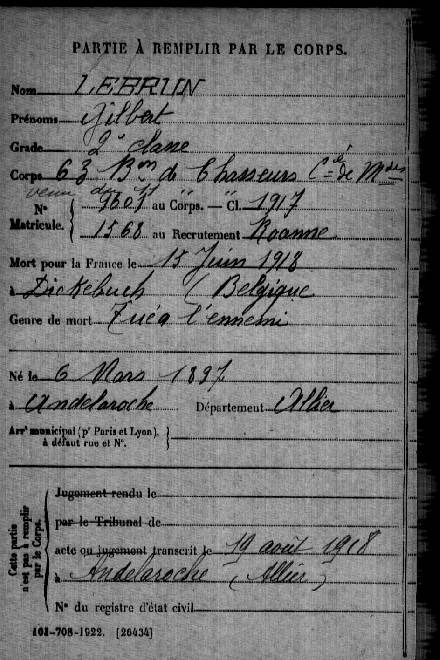 PARTIE À REMPLIR PAR LE CORPS.
Nom LEBRUN
Prénoms Gilbert
Grade 2e classe
Corps 63 Bon de Chasseurs Cie de Mses
venu du 11
N° Matricule. 9605 au Corps. — Cl. 1917
1568 au Recrutement Roanne
Mort pour la France le 15 Juin 1918
à Dickebuch (Belgique
Genre de mort Tué à l'ennemi
Né le 6 Mars 1897
à Andelaroche Département Allier
Arrt municipal (pr Paris et Lyon), à défaut rue et N°.
Cette partie n'est pas à remplir par le Corps.
Jugement rendu le
par le Tribunal de
acte ou jugement transcrit le 19 août 1918
à Andelaroche (Allier)
N° du registre d'état civil
101-708-1922. [26434]